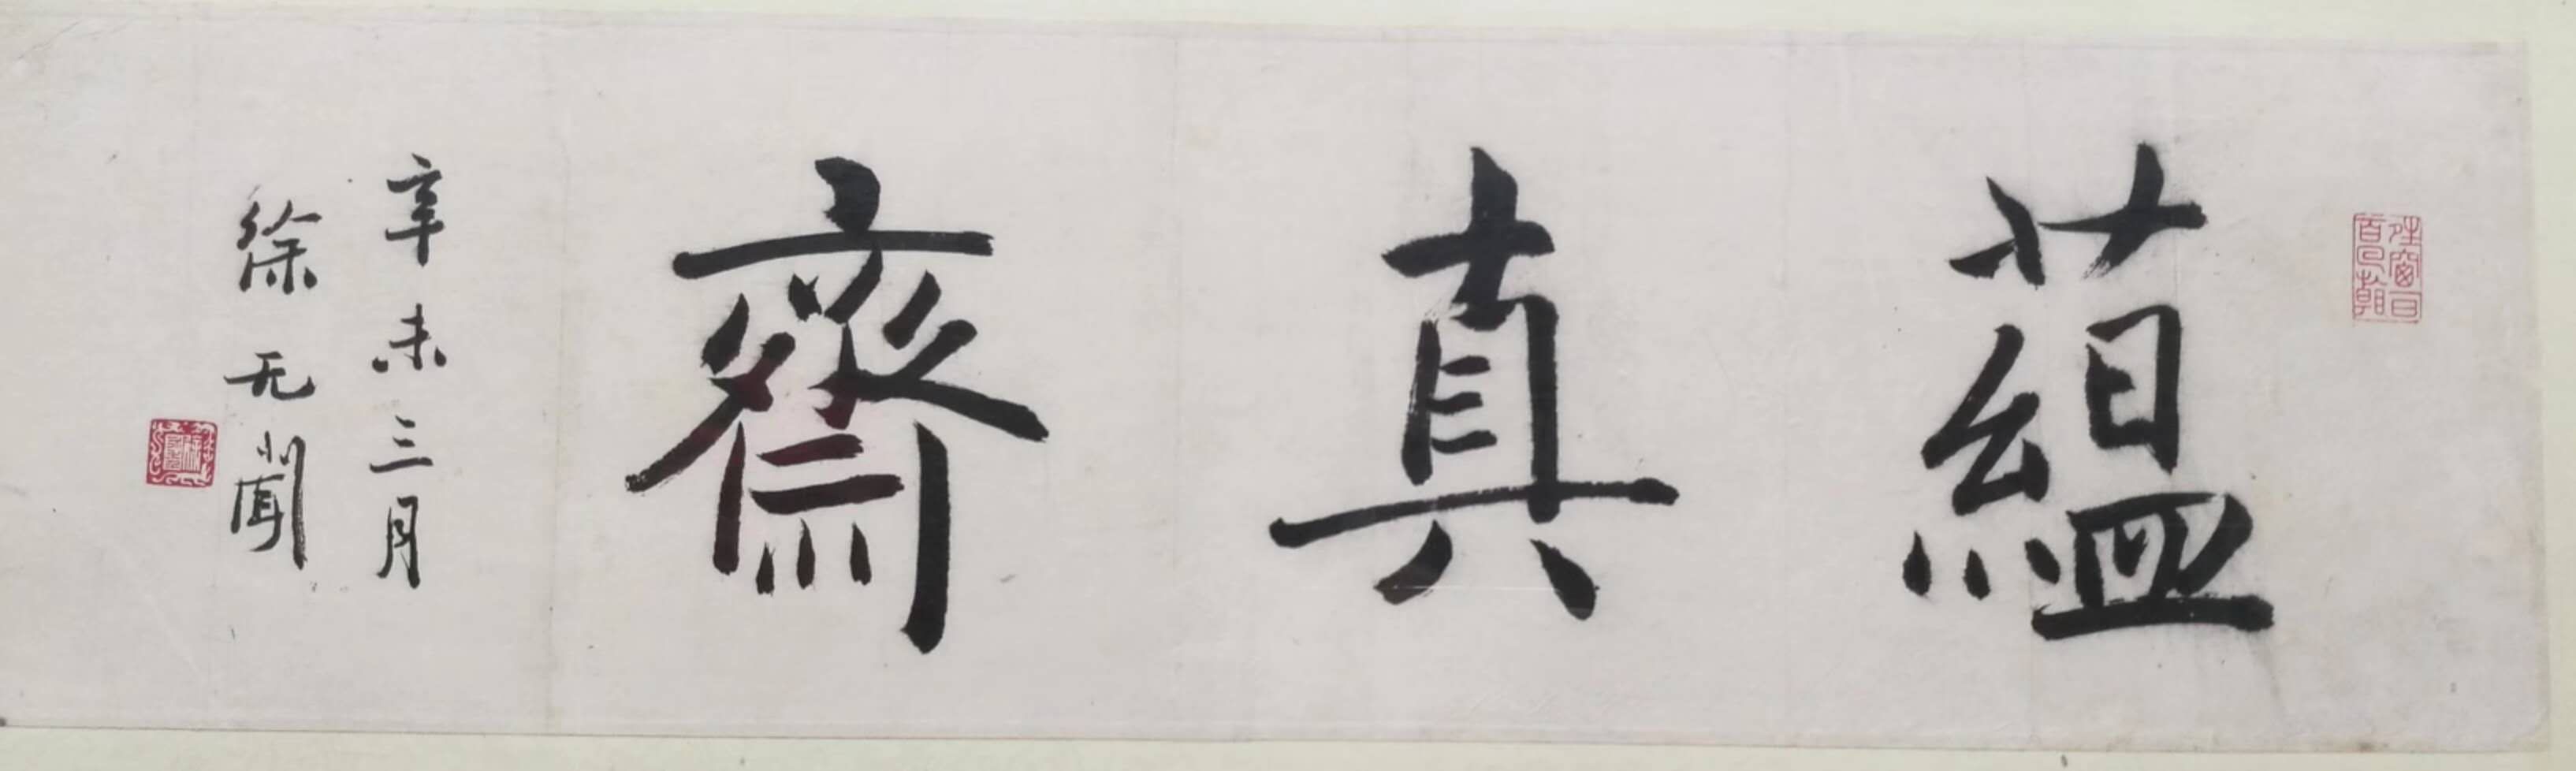 蕰真齋
辛未三月
徐无聞